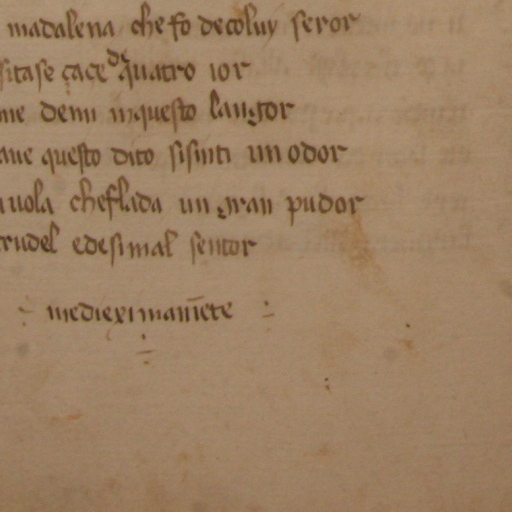 madalena che fo de coluy seror
sitase çace da quatro ior
me demi in questo langor
aue questo dito sisinti un odor
uola che flada un gran pudor
crudel e de si mal sentor